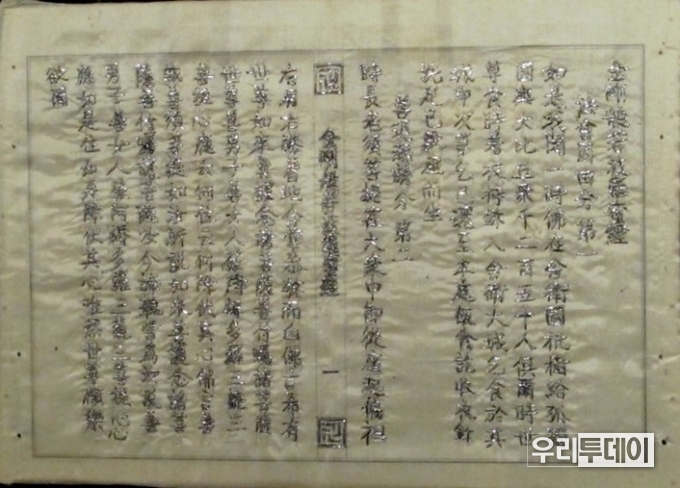 金剛般若波羅蜜經
法會因由分 第一
如是我聞一時佛在舍衛國祇樹給孤獨
園與大比丘衆千二百五十人俱爾時世
尊食時着衣持鉢入舍衛大城乞食於其
城中次第乞已還至本處飯食訖收衣鉢
洗足已敷座而坐
善現起請分 第二
時長老須菩提在大衆中卽從座起偏袒
金剛般若波羅蜜經 一
右肩右膝着地合掌恭敬而白佛言希有
世尊如來善護念諸菩薩善付囑諸菩薩
世尊善男子善女人發阿耨多羅三藐三
菩提心應云何住云何降伏其心佛言善
哉善哉須菩提如汝所說如來善護念諸菩
薩善付囑諸菩薩汝今諦聽當爲汝說善
男子善女人發阿耨多羅三藐三菩提心
應如是住如是降伏其心唯然世尊願樂
欲聞
우리투데이